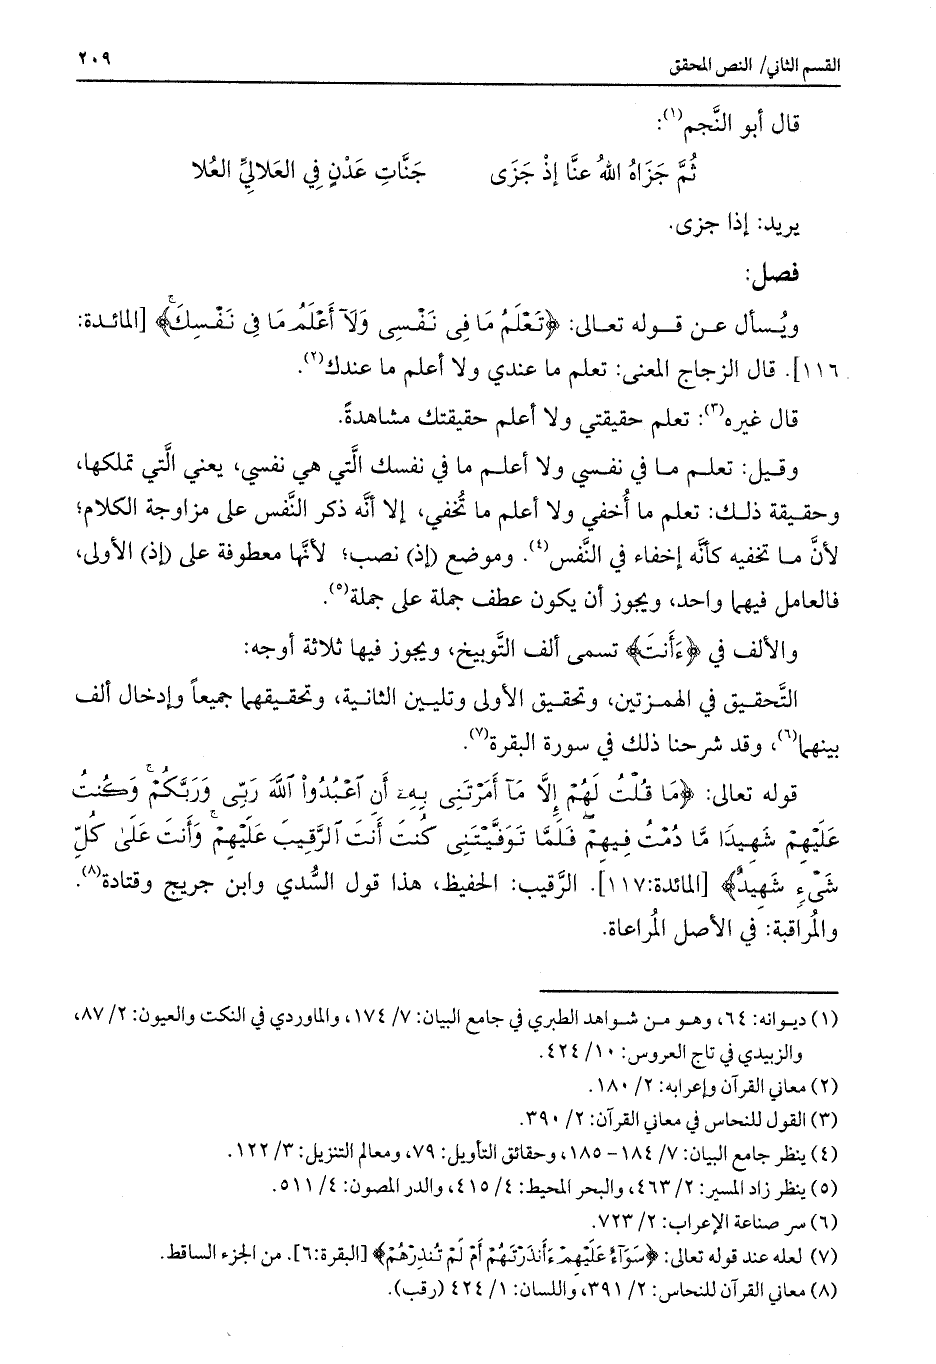 القسم الثاني/ النص المحقق ٢٠٩
قال أبو النَّجم(١):
ثُمَّ جَزَاهُ اللهُ عنَّا إذْ جَزَى جَنَّاتِ عَدْنٍ فِي العَلاليِّ العُلا
يريد: إذا جزى.
فصل:
ويُسأل عن قوله تعالى: ﴿تَعْلَمُ مَا فِى نَفْسِى وَلَآ أَعْلَمُ مَا فِى نَفْسِكَ﴾ [المائدة:
١١٦]. قال الزجاج المعنى: تعلم ما عندي ولا أعلم ما عندك(٢).
قال غيره(٣): تعلم حقيقتي ولا أعلم حقيقتك مشاهدةً.
وقيل: تعلم ما في نفسي ولا أعلم ما في نفسك الَّتي هي نفسي، يعني الَّتي تملكها،
وحقيقة ذلك: تعلم ما أُخفي ولا أعلم ما تُخفي، إلا أنَّه ذكر النَّفس على مزاوجة الكلام؛
لأنَّ ما تخفيه كأنَّه إخفاء في النَّفس(٤). وموضع (إذ) نصب؛ لأنَّها معطوفة على (إذ) الأولى،
فالعامل فيهما واحد، ويجوز أن يكون عطف جملة على جملة(٥).
والألف في ﴿ءَأَنتَ﴾ تسمى ألف التَّوبيخ، ويجوز فيها ثلاثة أوجه:
التَّحقيق في الهمزتين، وتحقيق الأولى وتليين الثانية، وتحقيقهما جميعاً وإدخال ألف
بينهما(٦)، وقد شرحنا ذلك في سورة البقرة(٧).
قوله تعالى: ﴿مَا قُلْتُ لَهُمْ إِلَّا مَآ أَمَرْتَنِى بِهِۦٓ أَنِ ٱعْبُدُوا۟ ٱللَّهَ رَبِّى وَرَبَّكُمْ ۚ وَكُنتُ
عَلَيْهِمْ شَهِيدًا مَّا دُمْتُ فِيهِمْ ۖ فَلَمَّا تَوَفَّيْتَنِى كُنتَ أَنتَ ٱلرَّقِيبَ عَلَيْهِمْ ۚ وَأَنتَ عَلَىٰ كُلِّ
شَىْءٍ شَهِيدٌ﴾ [المائدة:١١٧]. الرَّقيب: الحفيظ، هذا قول السُّدي وابن جريج وقتادة(٨).
والمُراقبة: في الأصل المُراعاة.
(١) ديوانه: ٦٤، وهو من شواهد الطبري في جامع البيان: ٧/ ١٧٤، والماوردي في النكت والعيون: ٢/ ٨٧،
والزبيدي في تاج العروس: ١٠/ ٤٢٤.
(٢) معاني القرآن وإعرابه: ٢/ ١٨٠.
(٣) القول للنحاس في معاني القرآن: ٢/ ٣٩٠.
(٤) ينظر جامع البيان: ٧/ ١٨٤- ١٨٥، وحقائق التأويل: ٧٩، ومعالم التنزيل: ٣/ ١٢٢.
(٥) ينظر زاد المسير: ٢/ ٤٦٣، والبحر المحيط: ٤/ ٤١٥، والدر المصون: ٤/ ٥١١.
(٦) سر صناعة الإعراب: ٢/ ٧٢٣.
(٧) لعله عند قوله تعالى: ﴿سَوَآءٌ عَلَيْهِمْ ءَأَنذَرْتَهُمْ أَمْ لَمْ تُنذِرْهُمْ﴾ [البقرة:٦]. من الجزء الساقط.
(٨) معاني القرآن للنحاس: ٢/ ٣٩١، واللسان: ١/ ٤٢٤ (رقب).